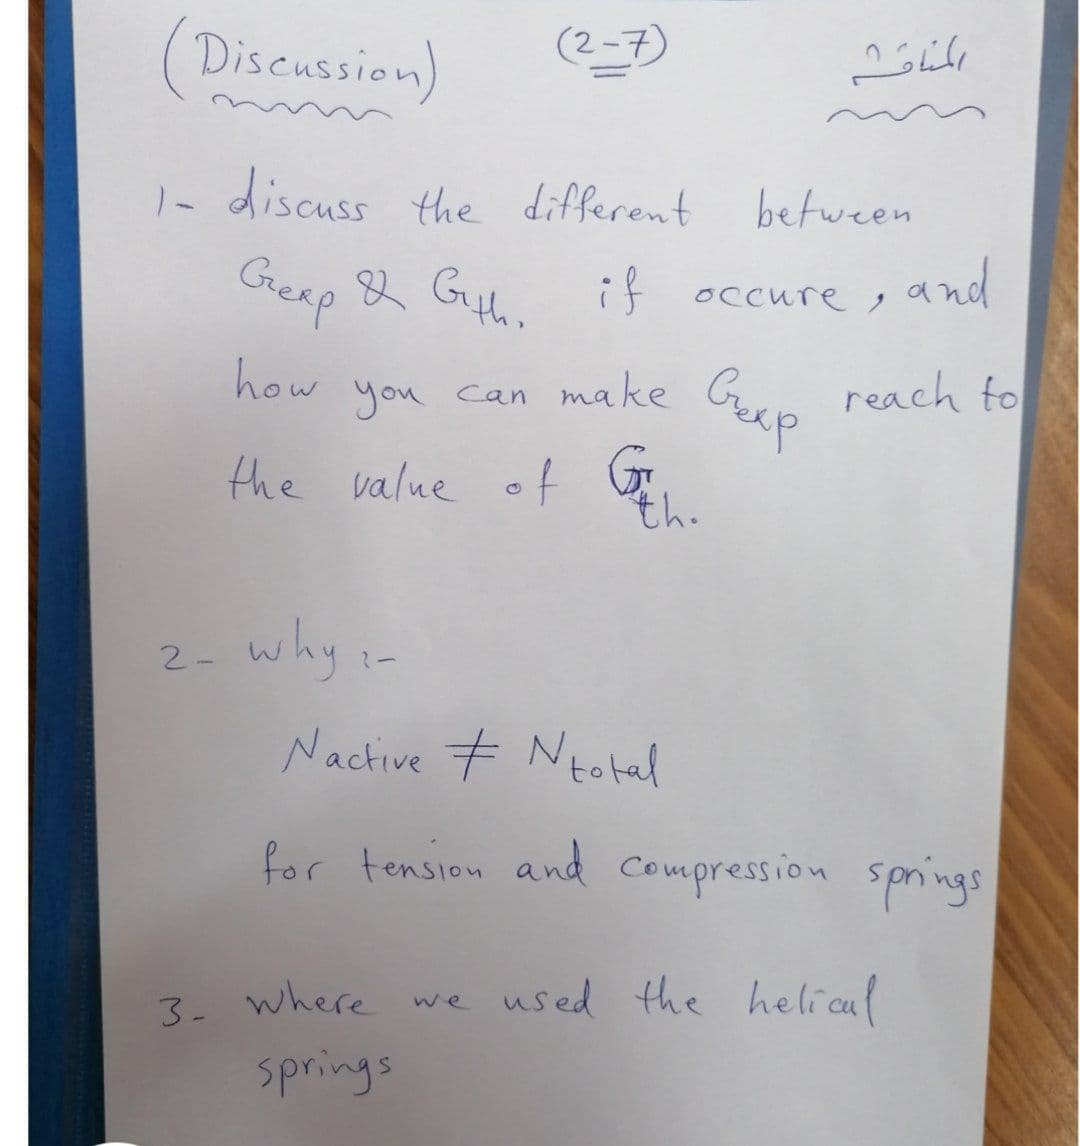 (Discussion) (2-7) المناقشة
1- discuss the different between
Gexp & Gth. if occure, and
how you can make Gexp reach to
the value of Gth.
2- why :-
Nactive ≠ Ntotal
for tension and compression springs
3- where we used the helical
springs